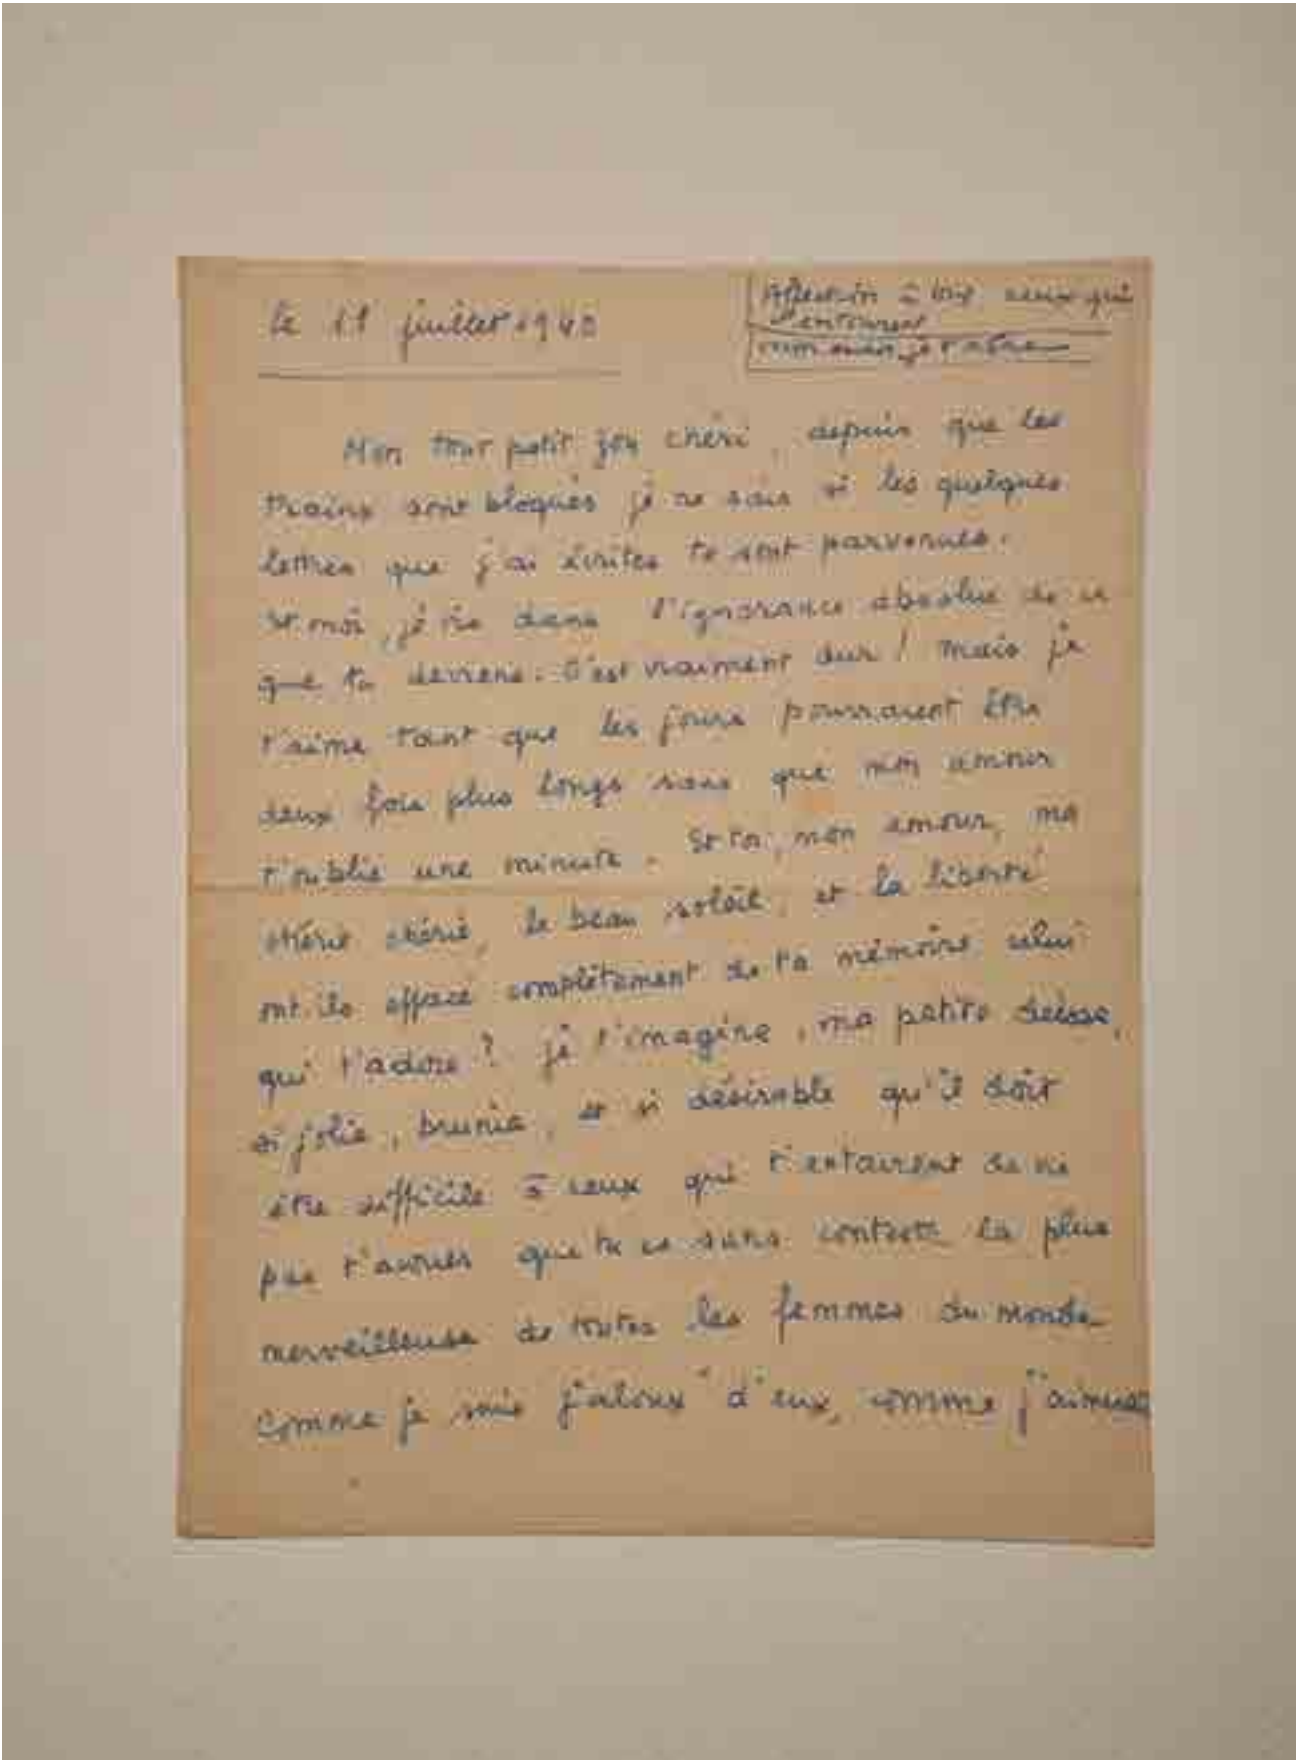 le 11 juillet 1940
Affection à tous ceux qui
t'entourent
mon je t'adore
Mon tout petit Jou chéri, depuis que les
trains sont bloqués je ne sais si les quelques
lettres que j'ai écrites te sont parvenues.
et moi, je vis dans l'ignorance absolue de ce
que tu deviens. C'est vraiment dur ! mais je
t'aime tant que les jours pourraient être
deux fois plus longs sans que mon amour
t'oublie une minute. Et toi, mon amour, ma
chérie chérie, le beau soleil, et la liberté
ont-ils effacé complètement de ta mémoire celui
qui t'adore ? je t'imagine, ma petite déesse,
si jolie, brunie, et si désirable qu'il doit
être difficile à ceux qui t'entourent de ne
pas t'avouer que tu es sans conteste la plus
merveilleuse de toutes les femmes du monde
comme je suis jaloux d'eux, comme j'aimerais